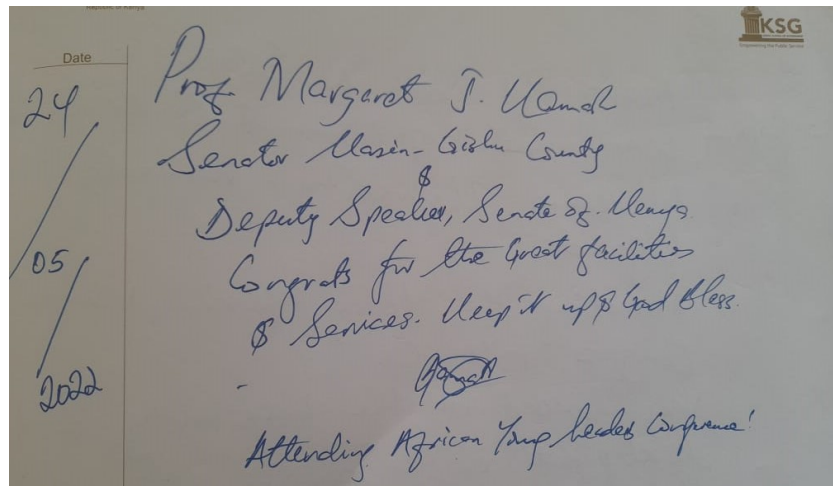 Republic of Kenya
KSG
Empowering the Public Service
Date
24
/
05
/
2022
Prof. Margaret J. Kamar
Senator Uasin-Gishu County
&
Deputy Speaker, Senate of Kenya
Congrats for the Great facilities
& Services. Keep it up & God Bless.
Attending African Young Leaders Conference!